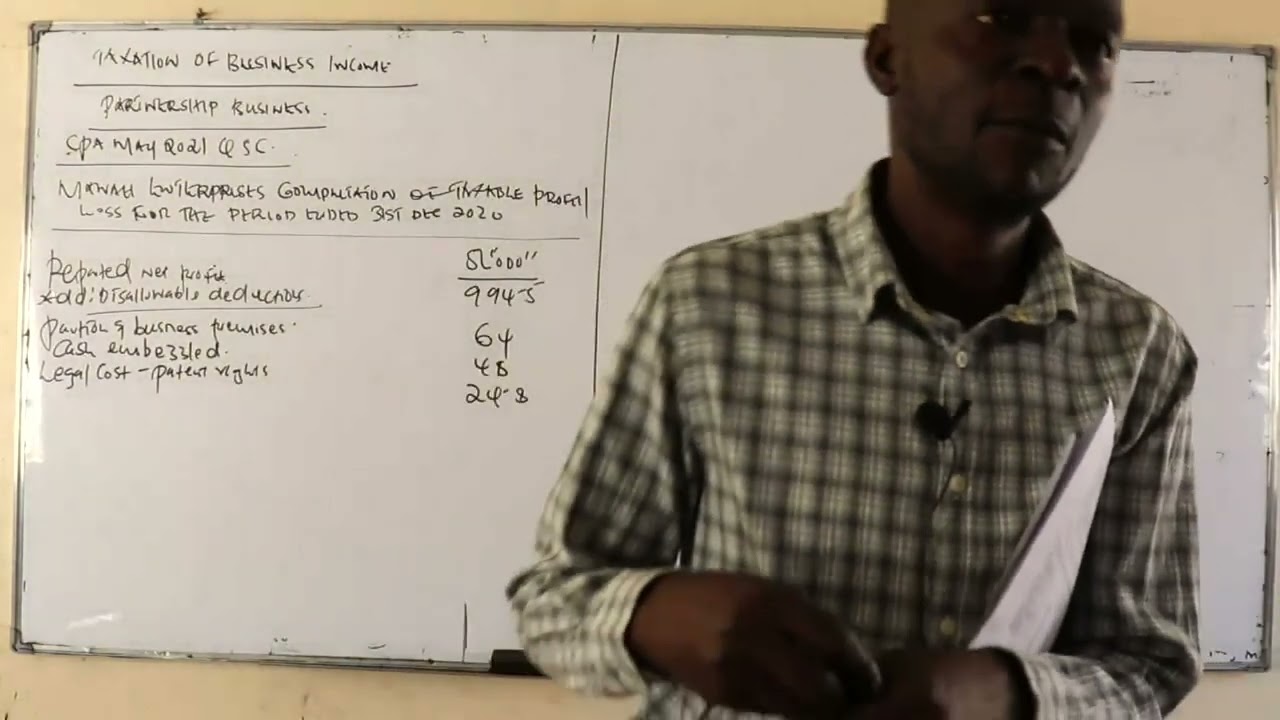 TAXATION OF BUSINESS INCOME
PARTNERSHIP BUSINESS.
CPA MAY 2021 Q5C.
ENTERPRISES COMPUTATION OF TAXABLE PROFIT/
LOSS FOR THE PERIOD ENDED 31ST DEC 2020
Sh"000"
Reported net profit 994.5
Add: Disallowable deductions.
Partion of business premises. 64
Cash embezzled. 48
Legal Cost - patent rights 24.8